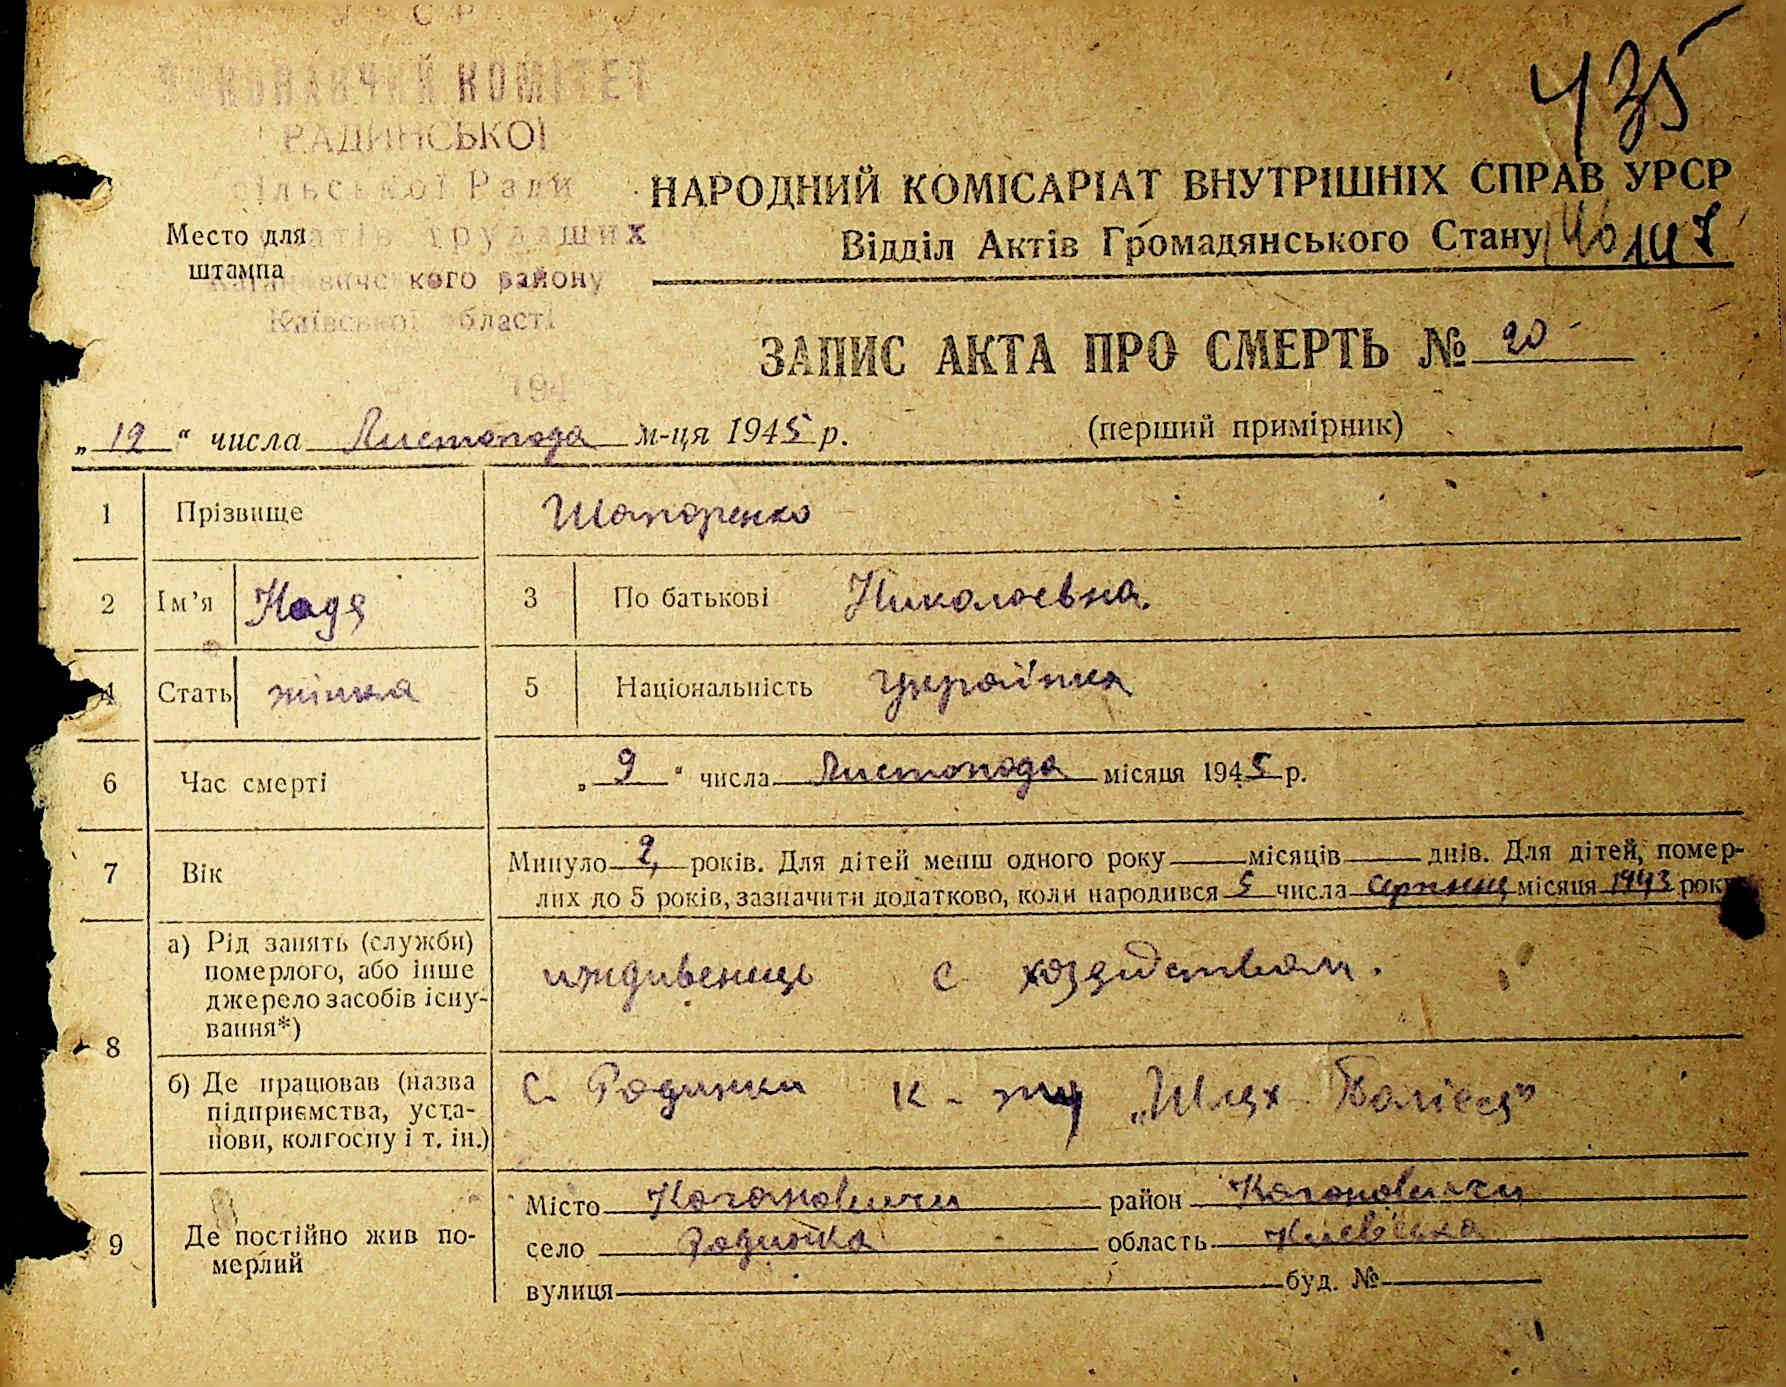 УРСР
435
ВИКОНАВЧИЙ КОМІТЕТ
РАДИНСЬКОЇ
сільської Ради
депутатів трудящих
Кагановичського району
Київської області
194
Место для
штампа
НАРОДНИЙ КОМІСАРІАТ ВНУТРІШНІХ СПРАВ УРСР
Відділ Актів Громадянського Стану
ЗАПИС АКТА ПРО СМЕРТЬ № 20
„ 12 “ числа Листопода м-ця 1945 р. (перший примірник)
1 Прізвище Шапоренко
2 Ім’я Надя 3 По батькові Николаевна.
4 Стать жінка 5 Національність українка
6 Час смерті „ 9 “ числа Листопода місяця 1945 р.
7 Вік Минуло 2 років. Для дітей менш одного року місяців днів. Для дітей, помер-
лих до 5 років, зазначити додатково, коли народився 5 числа серпня місяця 1943 року
8 а) Рід занять (служби)
померлого, або інше
джерело засобів існу-
вання*)
иждивенец с хозяйством.
б) Де працював (назва
підприємства, уста-
нови, колгоспу і т. ін.)
с. Радинки к-ту „Шлях Полісся”
9 Де постійно жив по-
мерлий
Місто Кагановичи район Кагановичи
село Радинка область Киевська
вулиця буд. №